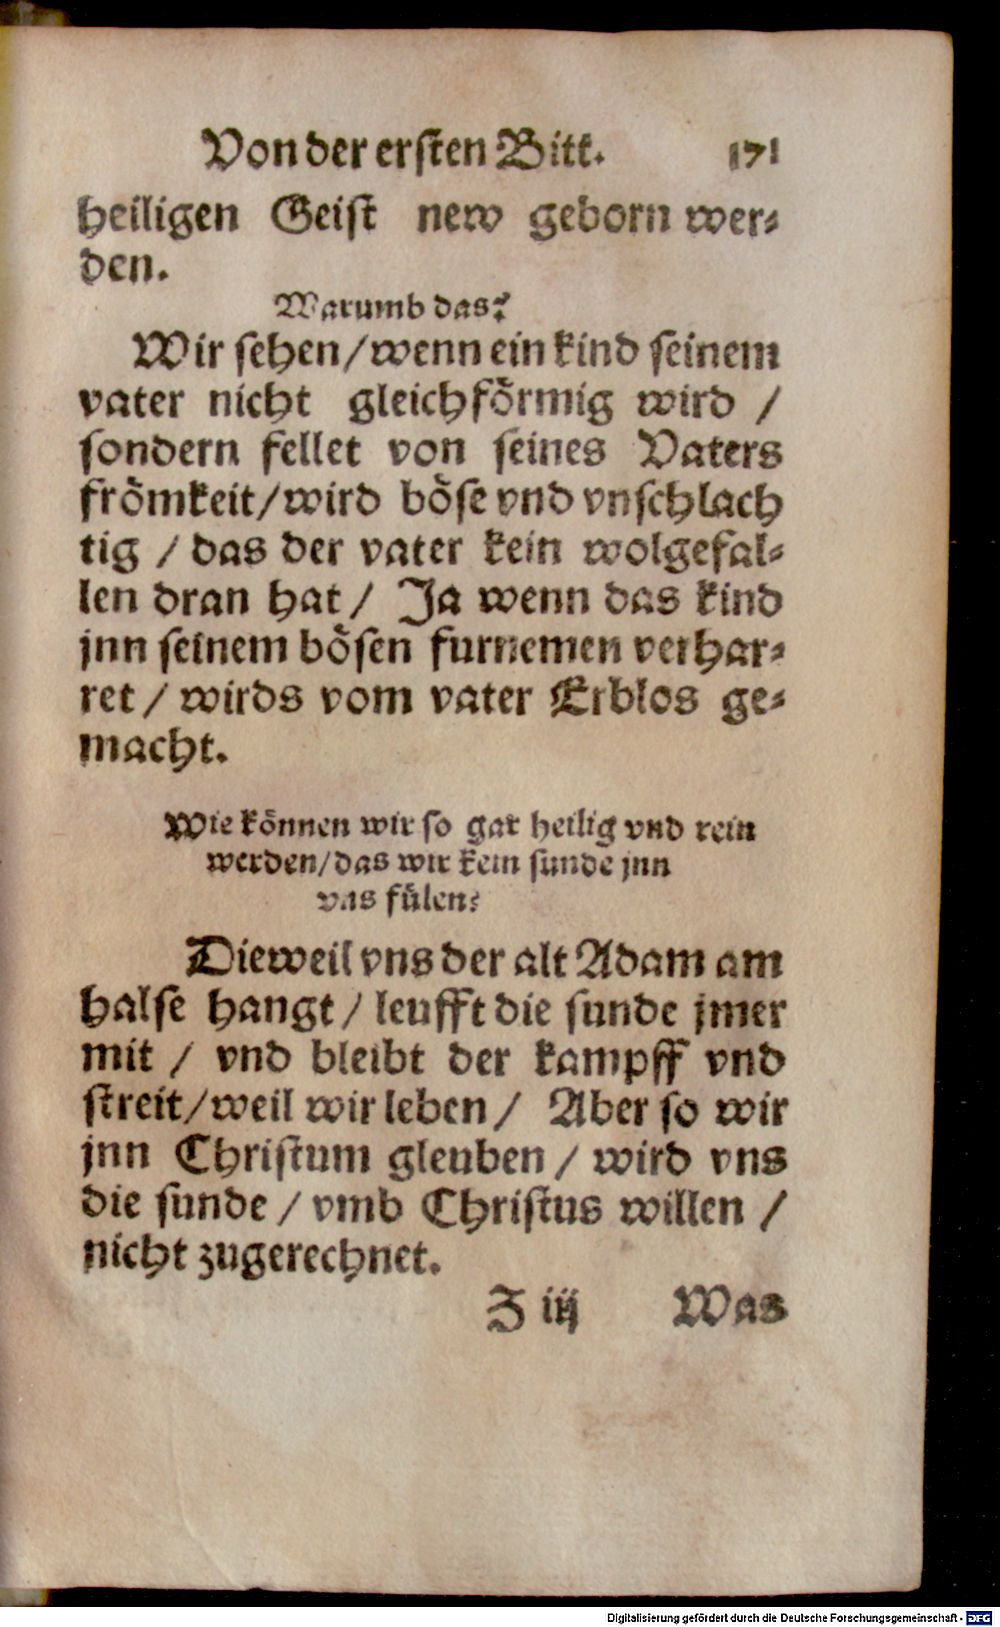 Von der ersten Bitt. 171
heiligen Geist new geborn wer⸗
den.
Warumb das?
Wir sehen/wenn ein kind seinem
vater nicht gleichförmig wird /
sondern fellet von seines Vaters
frömkeit/wird böse vnd vnschlach
tig / das der vater kein wolgefal⸗
len dran hat / Ja wenn das kind
jnn seinem bösen furnemen verhar⸗
ret / wirds vom vater Erblos ge⸗
macht.
Wie können wir so gar heilig vnd rein
werden/das wir kein sunde jnn
vns fülen?
Dieweil vns der alt Adam am
halse hangt / leufft die sunde jmer
mit / vnd bleibt der kampff vnd
streit/weil wir leben / Aber so wir
jnn Christum gleuben / wird vns
die sunde / vmb Christus willen /
nicht zugerechnet.
Z iij Was
Digitalisierung gefördert durch die Deutsche Forschungsgemeinschaft - DFG